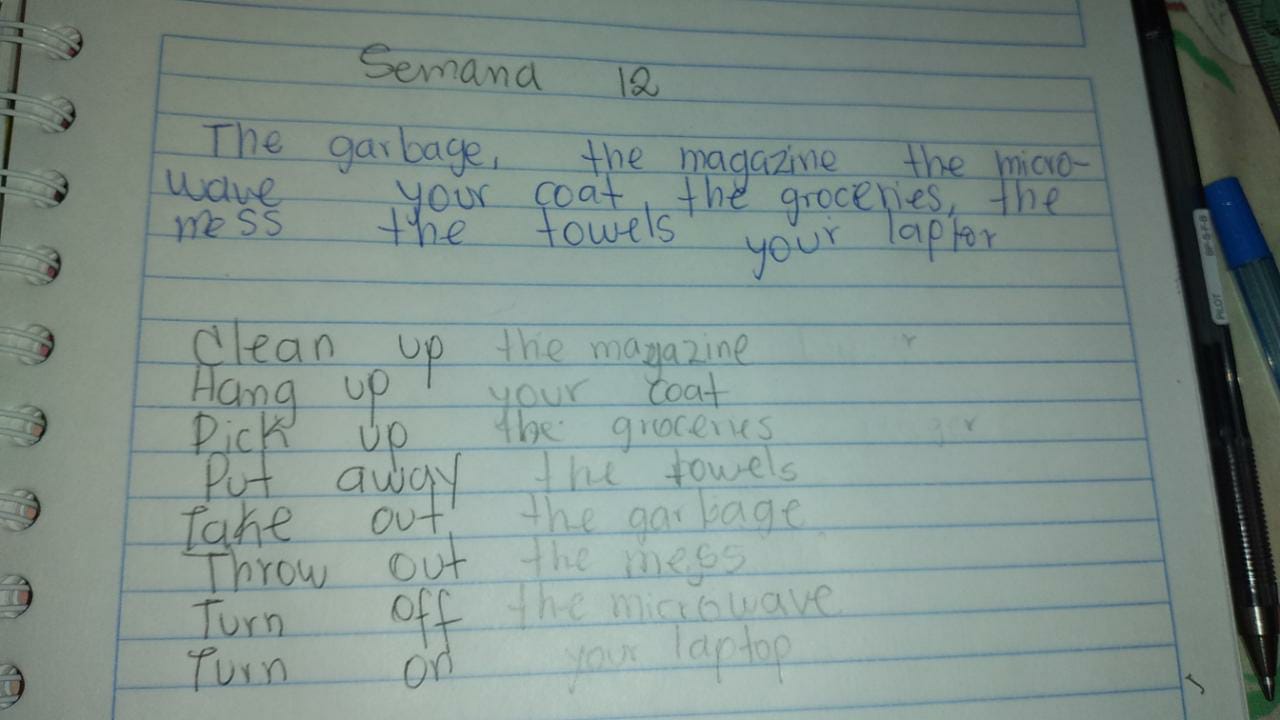 Semana 12
The garbage, the magazine the micro-
wave your coat, the groceries, the
mess the towels your laptor
Clean up the magazine
Hang up your coat
Pick up the groceries
Put away the towels
Take out the garbage
Throw out the mess
Turn off the microwave
Turn on your laptop
PILOT BP-S-F-B